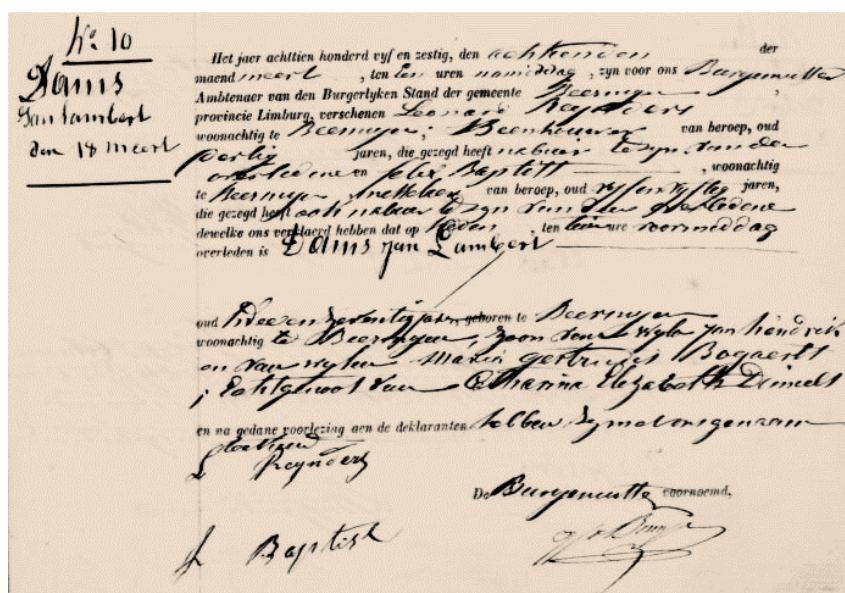 N° 10
Dams
Jan Lambert
den 18 meert
Het jaer achttien honderd vyf en zestig, den achttienden der
maend meert , ten een uren namiddag , zyn voor ons Burgemeester
Ambtenaer van den Burgerlyken Stand der gemeente Beeringen ,
provincie Limburg, verschenen Leonard Reynders
woonachtig te Beeringen, Beenhouwer van beroep, oud
dertig jaren, die gezegd heeft nabuer te zyn van den
overledene en Felix Baptist , woonachtig
te Beeringen, van beroep, oud vyf en vyftig jaren,
die gezegd heeft ook nabuer te zyn van den overledene
dewelke ons verklaerd hebben dat op heden , ten tien ure voormiddag
overleden is Dams Jan Lambert
oud twee en zeventig jaren, geboren te Beeringen
woonachtig te Beeringen, zoon van wylen Jan hendrik
en van wylen Maria Gertrudis Bogaerts
; Echtgenoot van Catharina Elizabeth
en na gedane voorlezing aen de deklaranten hebben zy met ons genaam
teekend
L Reynders
De Burgemeester voornoemd,
F Baptist